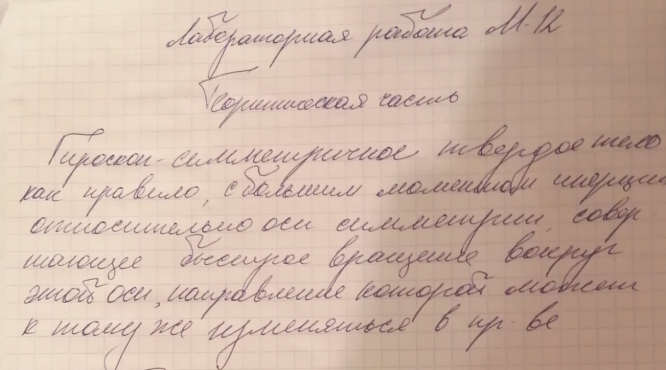 Лабораторная работа М-12
Теоритическая часть
Гироскоп - симметричное твердое тело
как правило, с большим моментом инерции
относительно оси симметрии, совер
шающее быстрое вращение вокруг
этой оси, направление которой может
к тому же изменяться в пр. ве